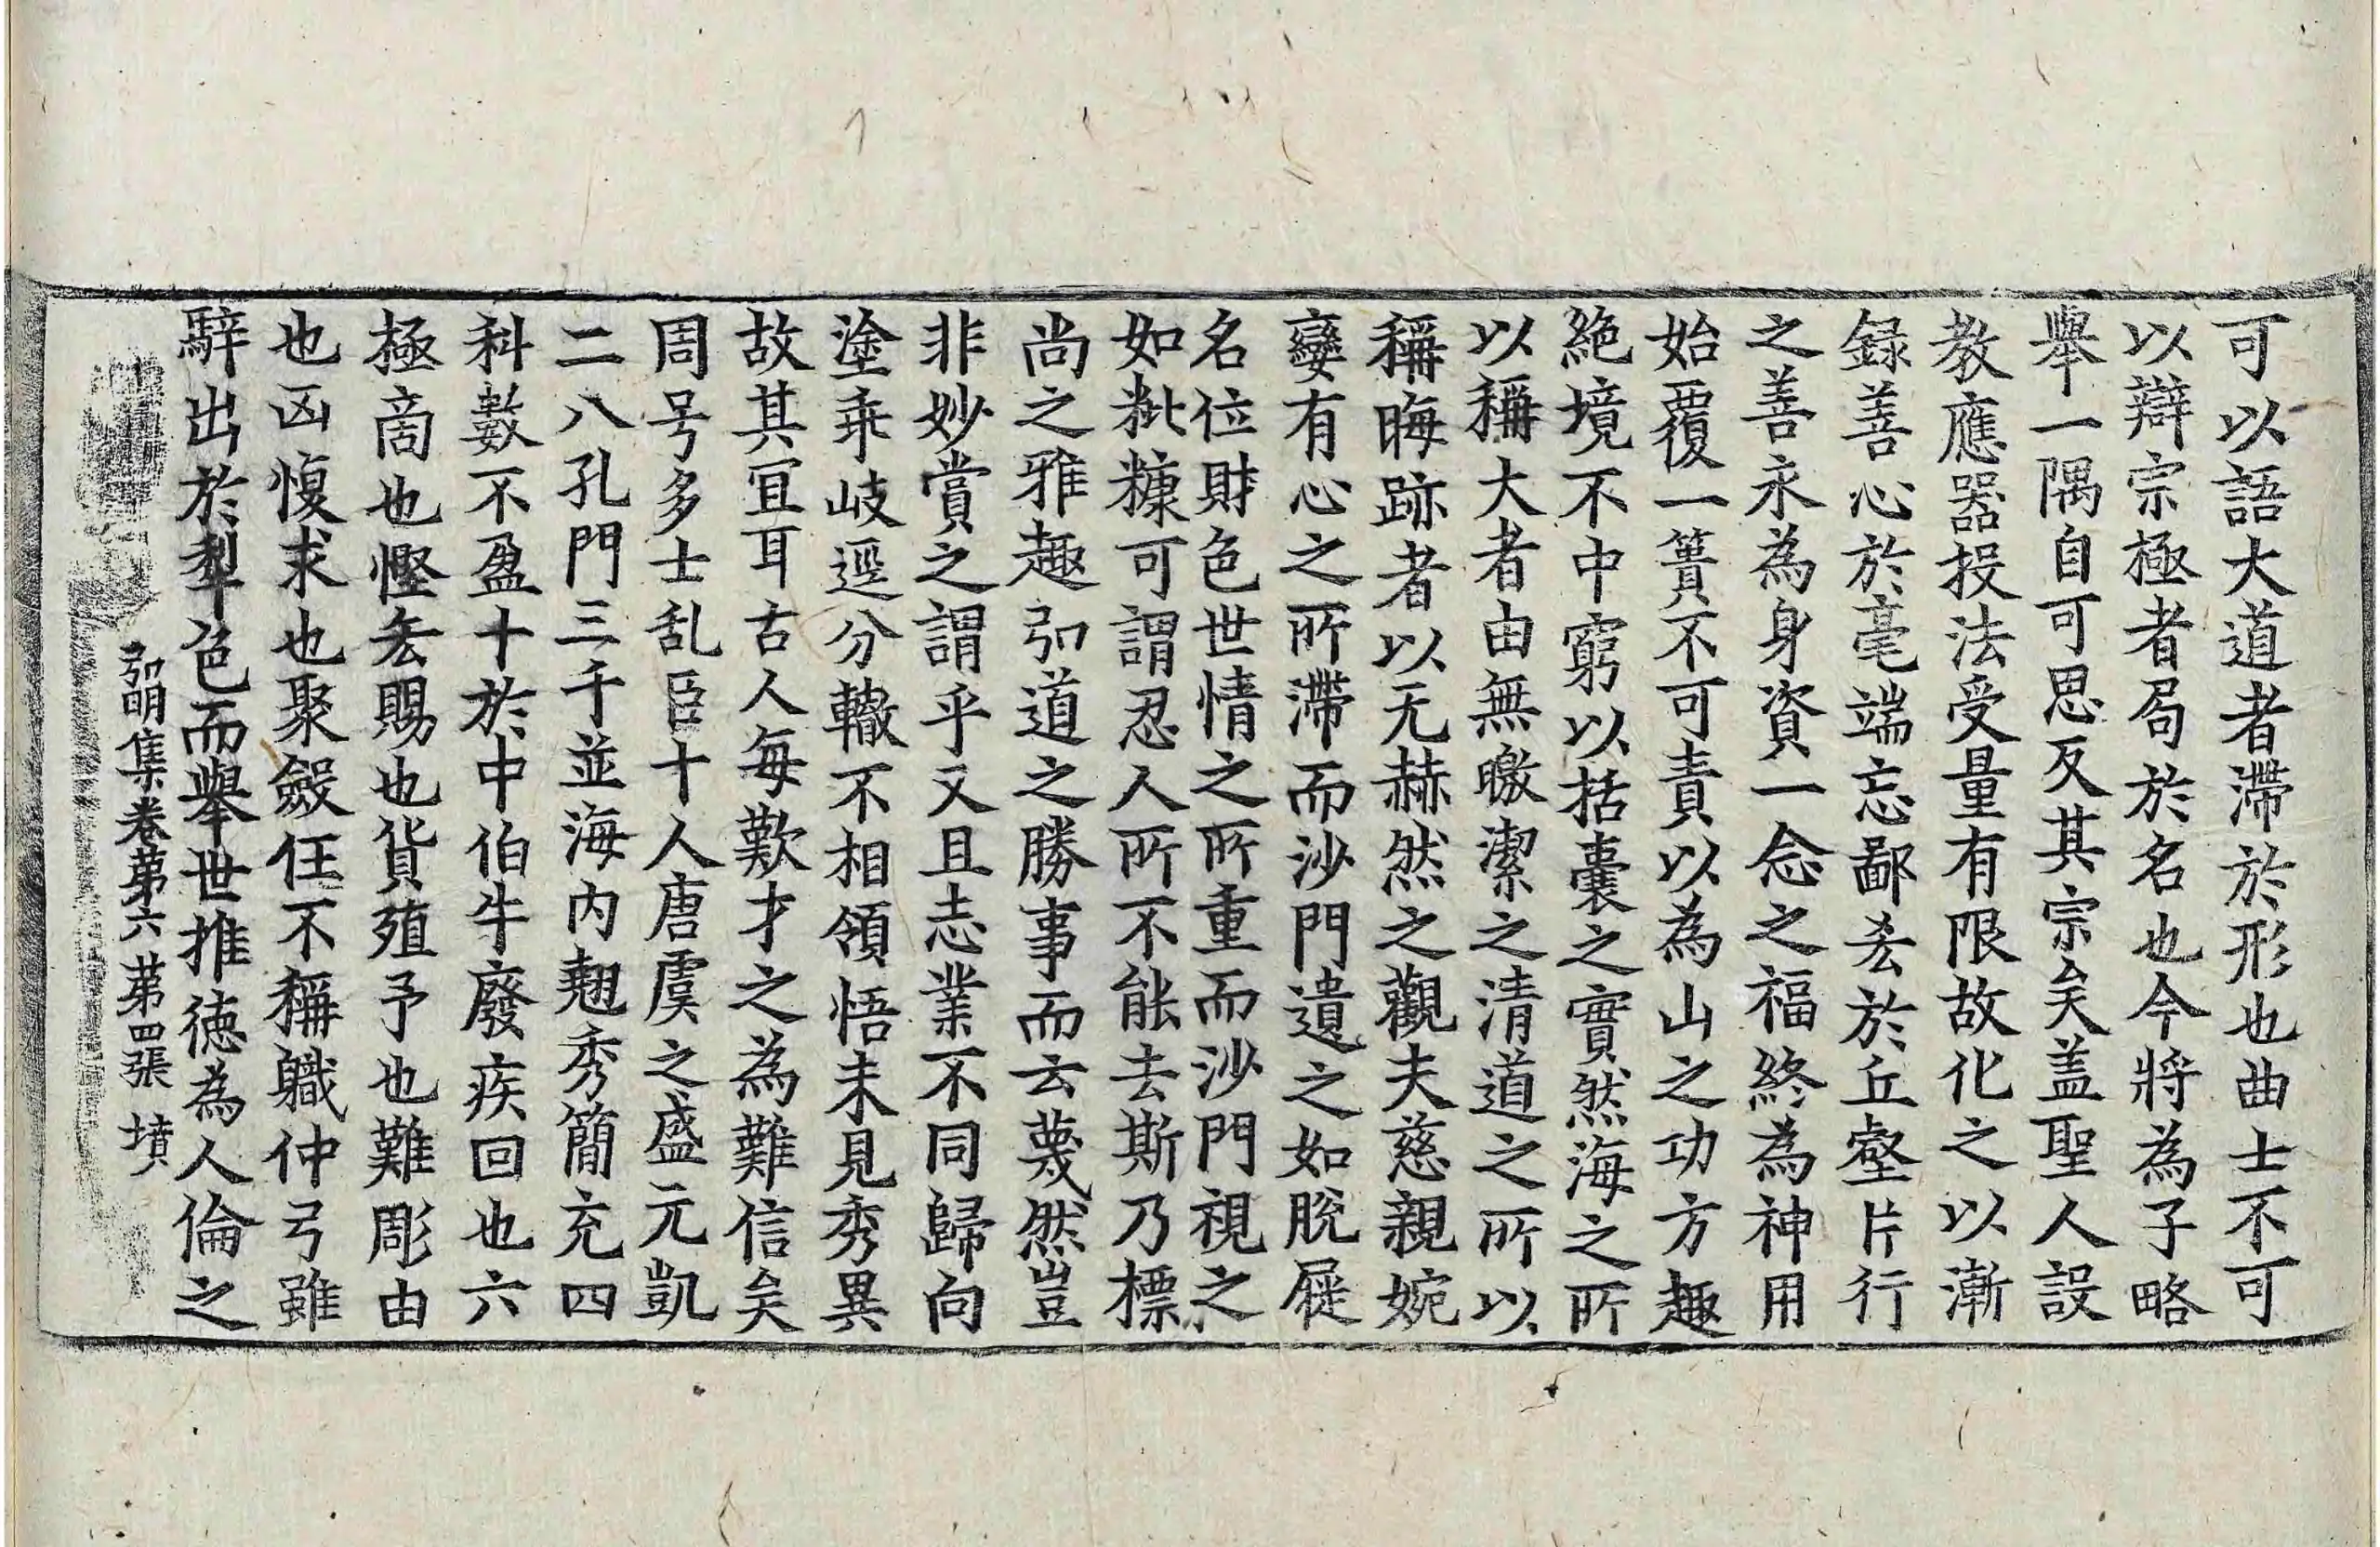 可以語大道者滯於形也曲士不可
以辯宗極者局於名也今將為子略
舉一隅自可思反其宗矣盖聖人設
教應器投法受量有限故化之以漸
録善心於毫端忘鄙吝於丘壑片行
之善永為身資一念之福終為神用
始覆一簣不可責以為山之功方趣
絶境不中窮以括囊之實然海之所
以稱大者由無曒潔之清道之所以
稱晦跡者以无赫然之觀夫慈親婉
孌有心之所滯而沙門遺之如脫屣
名位財色世情之所重而沙門視之
如粃糠可謂忍人所不能去斯乃標
尚之雅趣弘道之勝事而云蔑然豈
非妙賞之謂乎又且志業不同歸向
塗乖岐逕分轍不相領悟未見秀異
故其冝耳古人每歎才之為難信矣
周号多士乱臣十人唐虞之盛元凱
二八孔門三千並海内翹秀簡充四
科數不盈十於中伯牛廢疾回也六
極啇也慳吝賜也貨殖予也難彫由
也凶愎求也聚斂任不稱軄仲弓雖
騂出於犁色而舉世推德為人倫之
弘明集卷苐六苐四張 墳